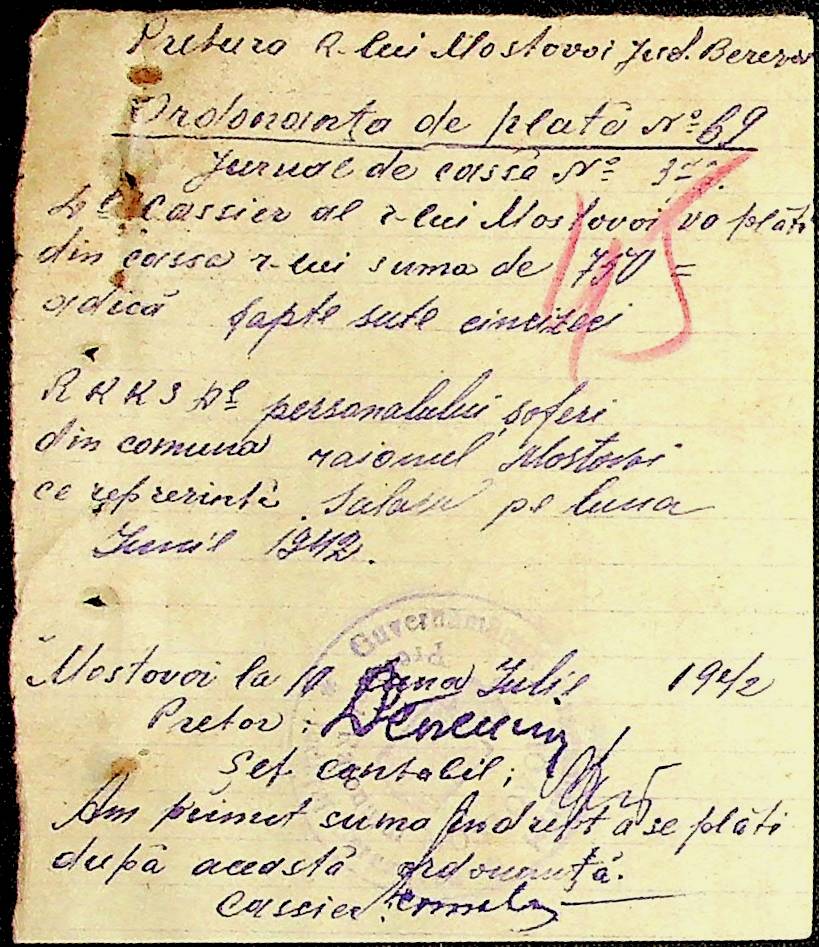 Pretura R-lui Mostovoi Jud. Berezov
Ordonanța de plată Nº 69
Jurnal de cassă Nº
45
Dl Cassier al r-lui Mostovoi va plăti
din cassa r-lui suma de 750 =
adică șapte sute cincizeci
R K K S Dl personalului șoferi
din comuna raionul Mostovoi
ce reprezintă Salarii pe luna
Iunie 1942.
Guvernământ
Mostovoi la 10 Luna Iulie 1942
Pretor :
Șef contabil;
Am primit suma în drept a se plăti
după această ordonanță.
Cassier: